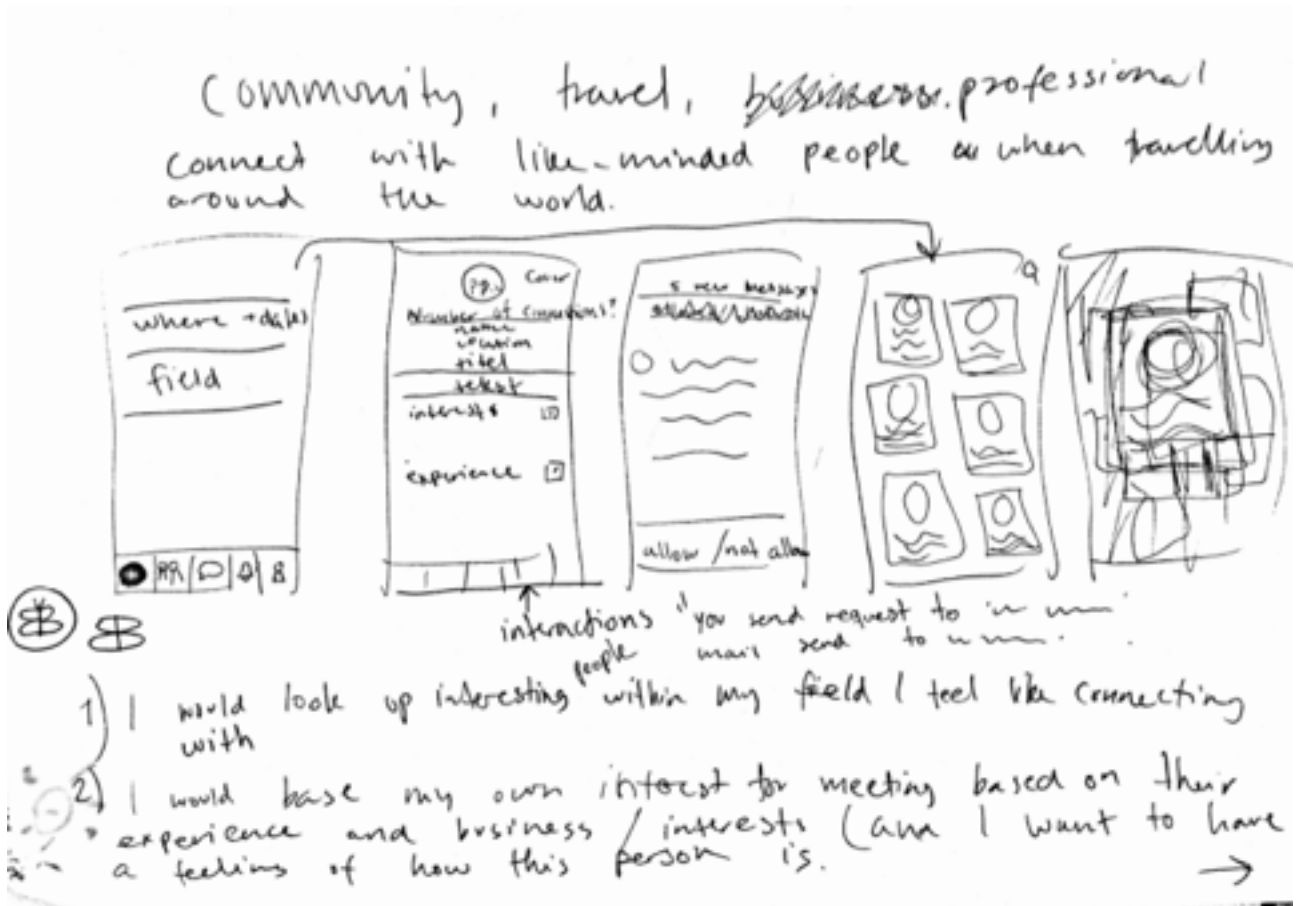 Community, travel, professional
connect with like-minded people when travelling
around the world.
where + date(s)
field
Cover
Number of connections?
name
location
titel
tekst
interests
experience
5 new messages
allow / not allow
interactions "you send request to
people
mail send to
1) I would look up interesting within my field I feel like connecting
with
2) I would base my own interest for meeting based on their
experience and business / interests (and I want to have
a feelings of how this person is.